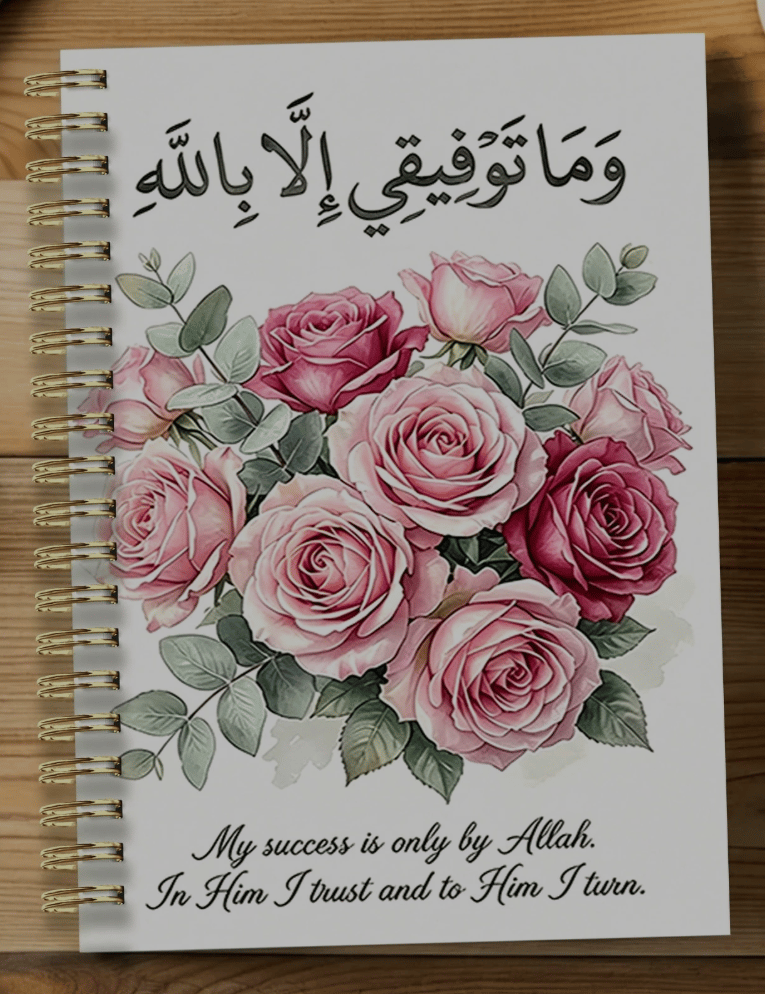 وَمَا تَوْفِيقِي إِلَّا بِاللَّهِ
My success is only by Allah.
In Him I trust and to Him I turn.